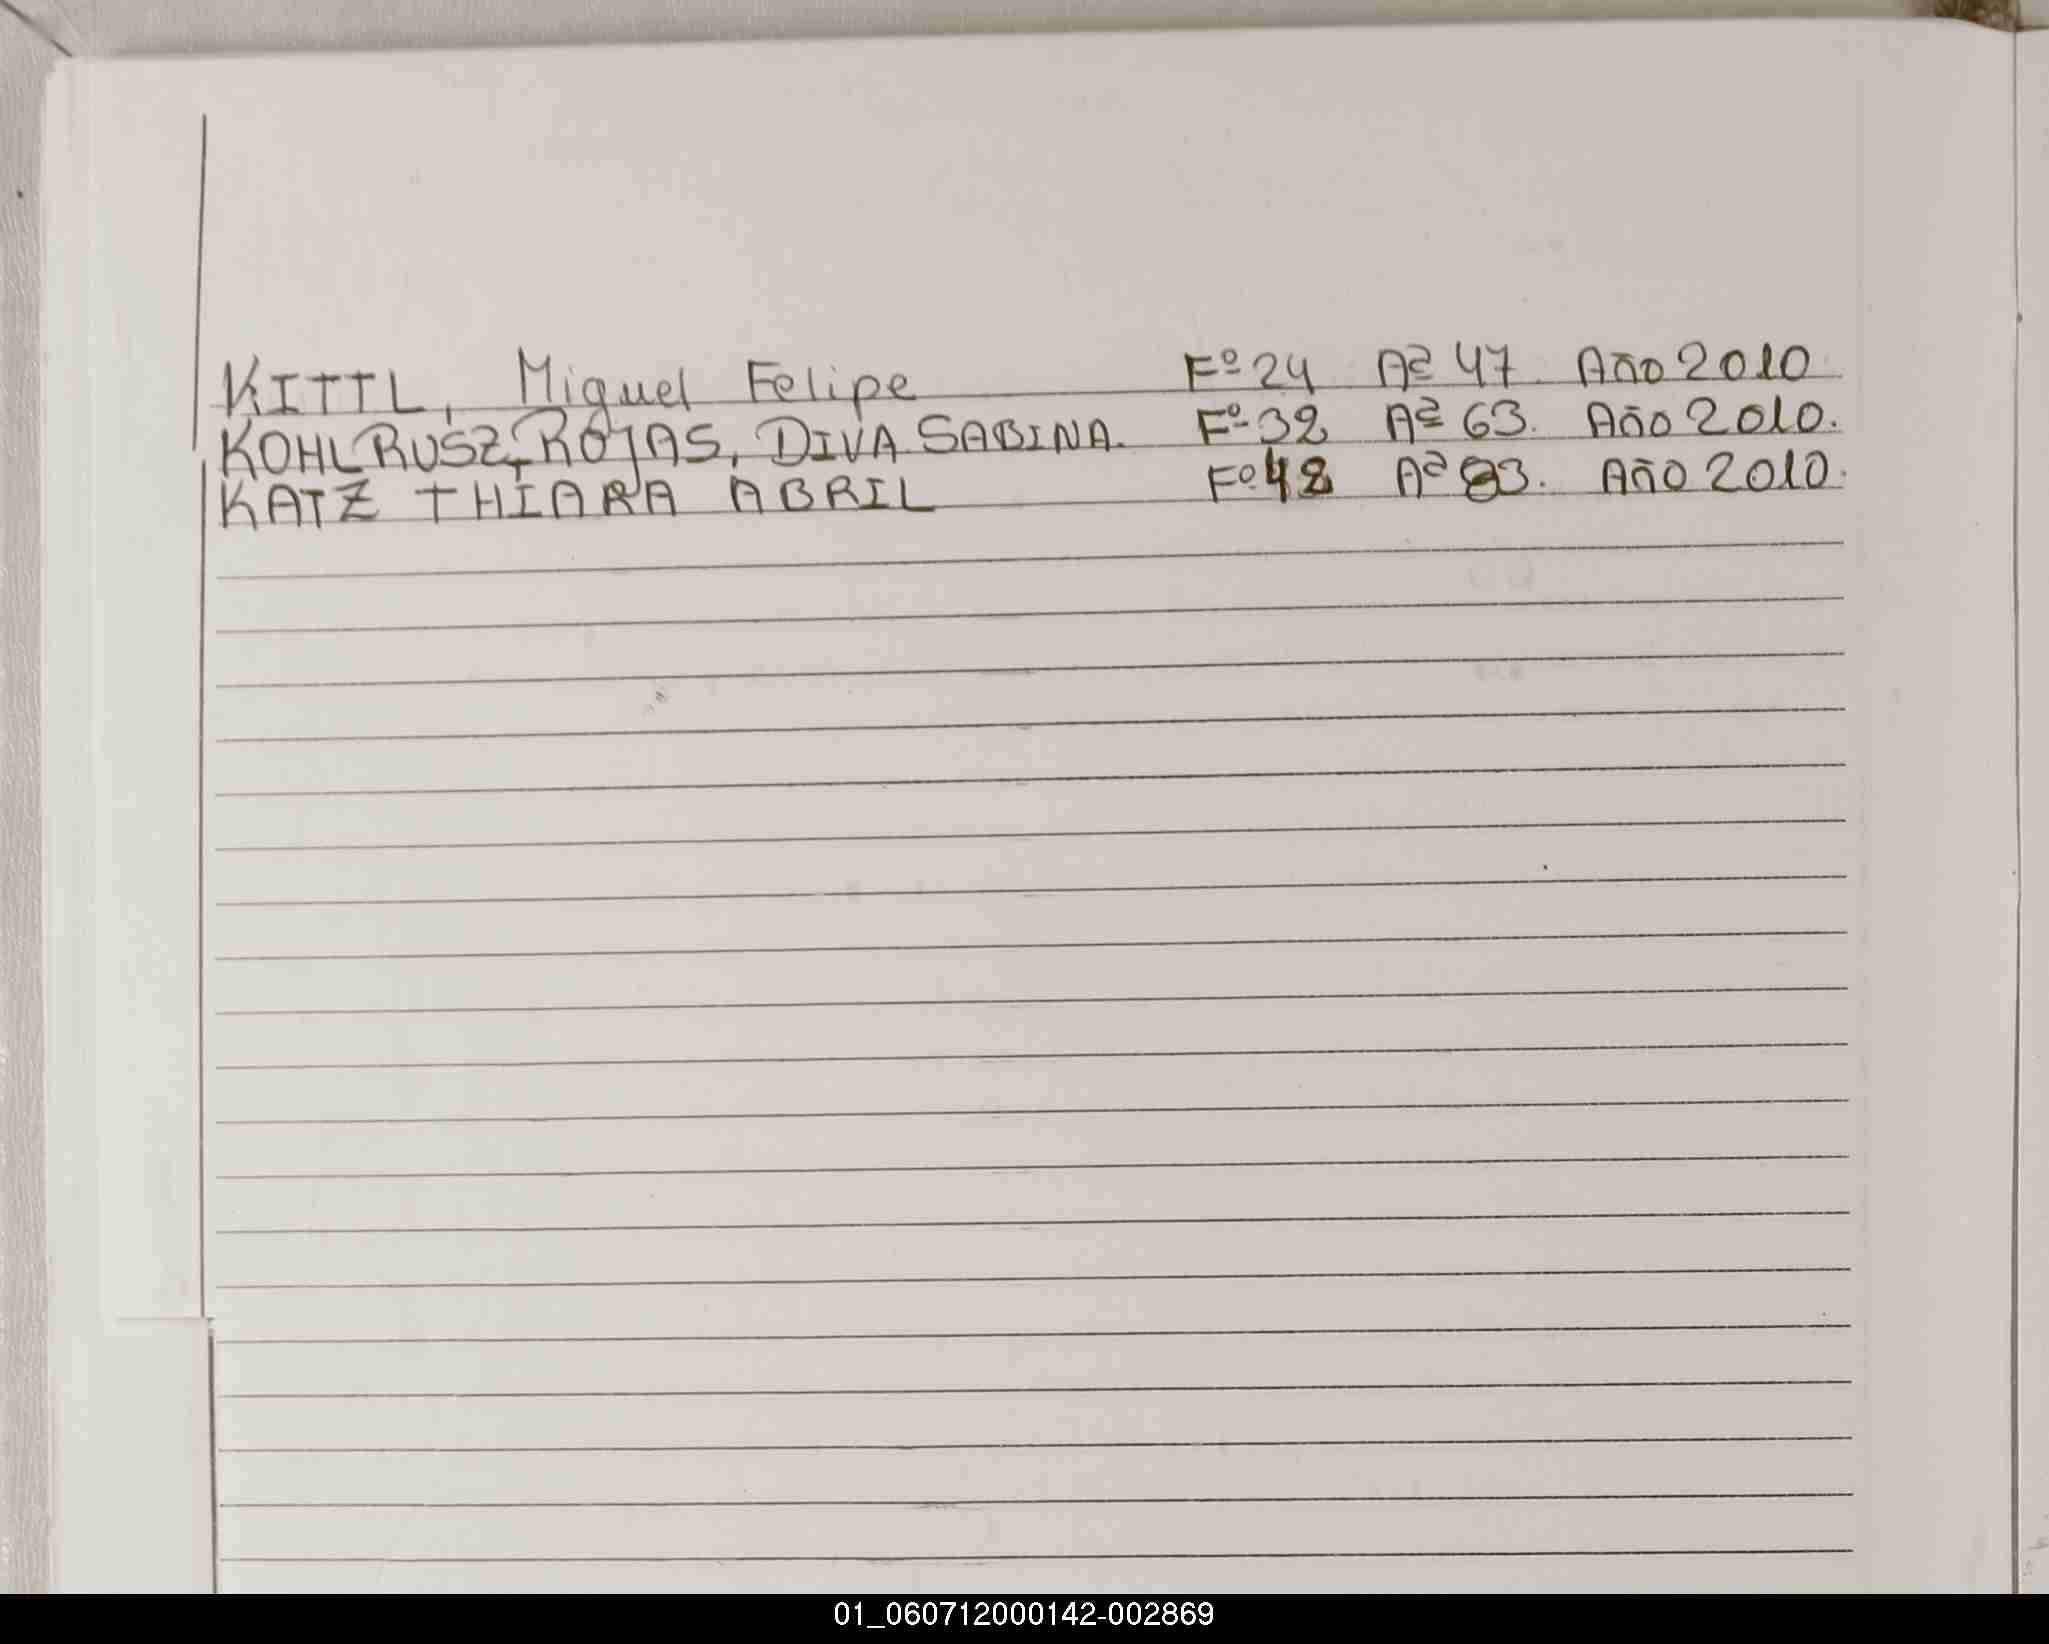 KITTL, Miguel Felipe Fº 24 Aª 47. Año 2010
KOHLRUSZ, ROJAS, DIVA SABINA. Fº 32 Aª 63. Año 2010.
KATZ THIARA ABRIL Fº 42 Aª 83. Año 2010.
01_060712000142-002869